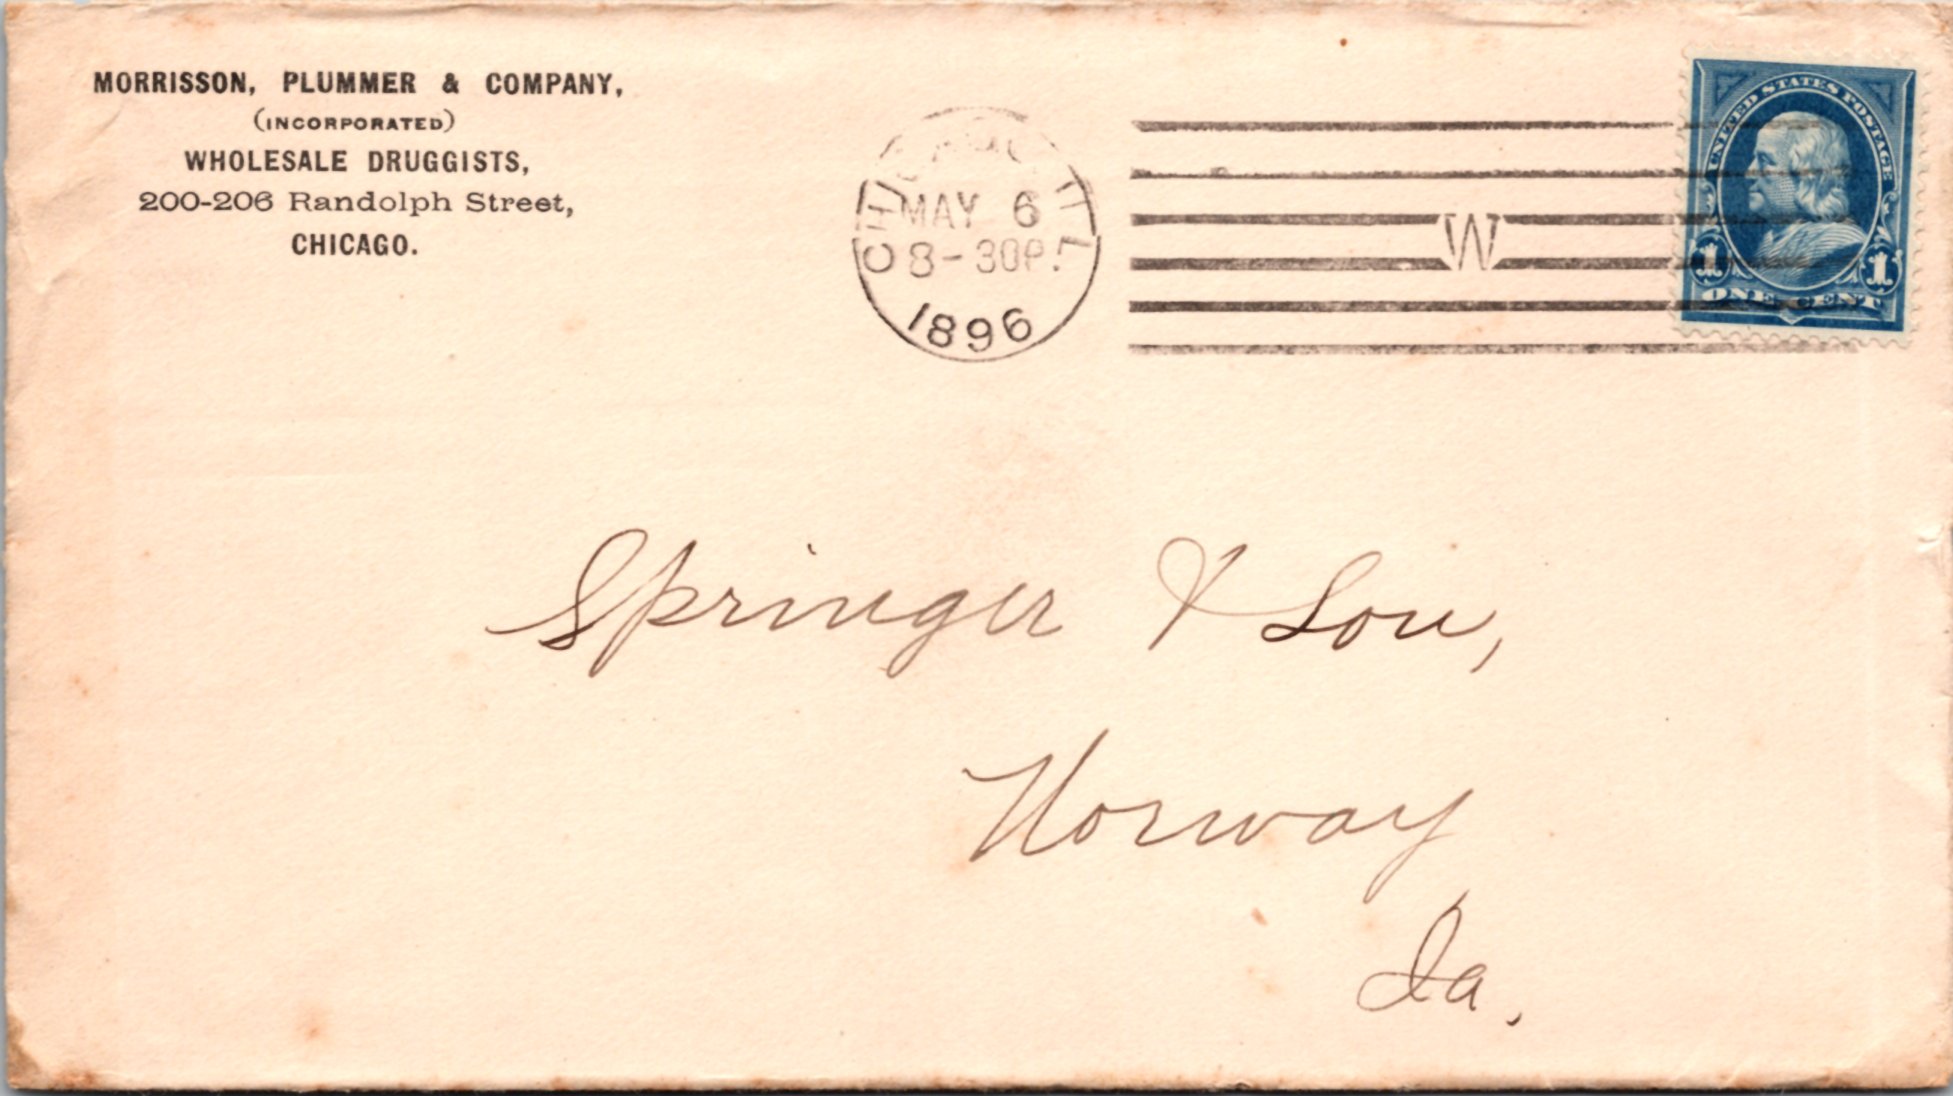 MORRISSON, PLUMMER & COMPANY,
(INCORPORATED)
WHOLESALE DRUGGISTS,
200-206 Randolph Street,
CHICAGO.
CHICAGO ILL
MAY 6
8-30P.
1896
W
UNITED STATES POSTAGE
1 1
ONE CENT
Springer & Son,
Norway
Ia.